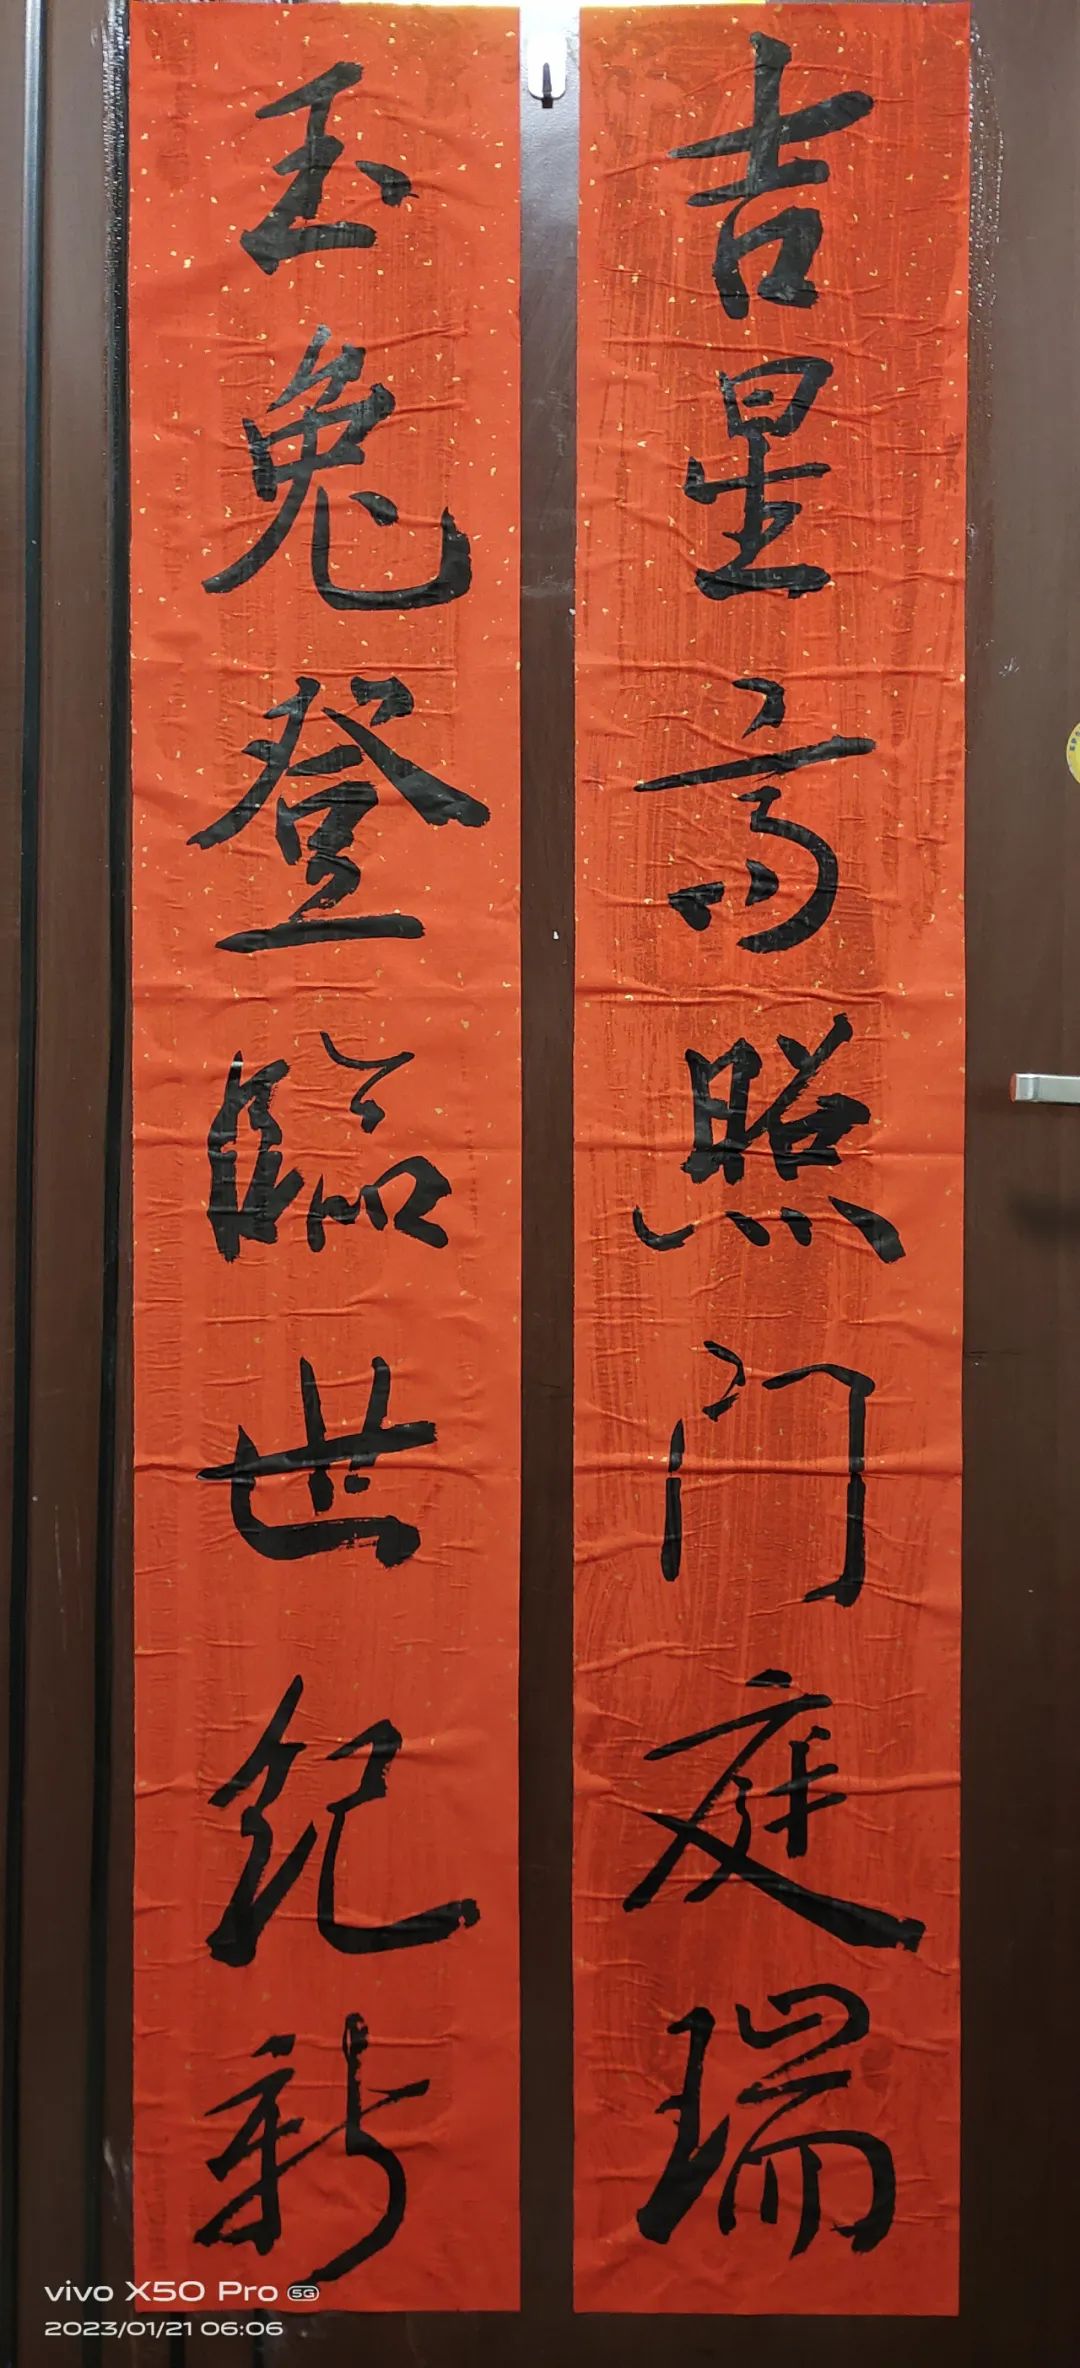 吉星高照门庭瑞
玉兔登臨世纪新
vivo X50 Pro 5G
2023/01/21 06:06